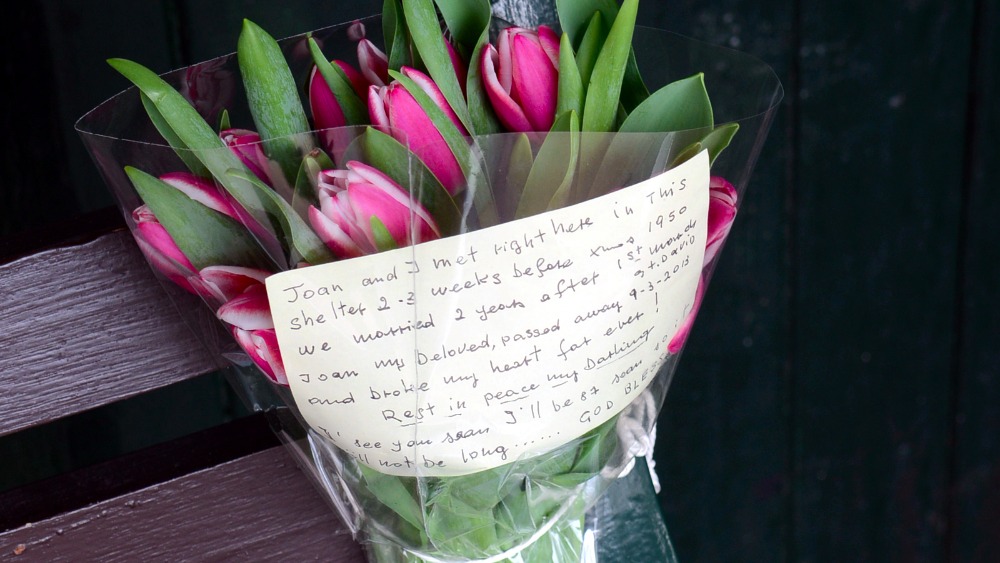 Joan and I met right here in This
shelter 2-3 weeks before Xmas 1950
we married 2 years after 1st March
St. David
Joan my beloved, passed away 9-3-2013
and broke my heart for ever !
Rest in peace my Darling
see you soon I'll be 87 soon so
not be long...... GOD BLESS